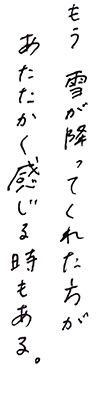 もう 雪が降ってくれた方が
あたたかく感じる時もある。